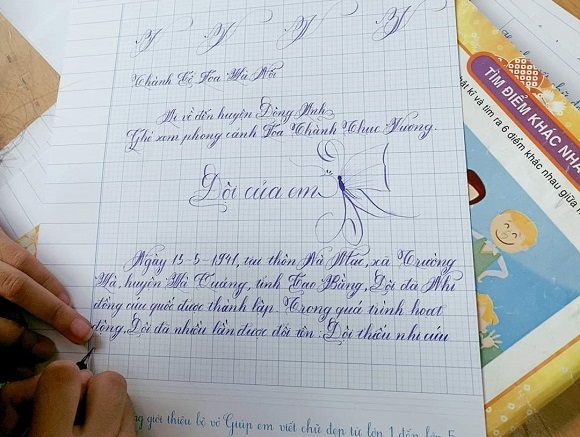 Thành Cổ Loa Hà Nội
Ai về đến huyện Đông Anh
Ghé xem phong cảnh Loa Thành Thục Vương.
Đội của em
Ngày 15-5-1941, tại thôn Nà Mạ, xã Trường
Hà, huyện Hà Quảng, tỉnh Cao Bằng, Đội đã Nhi
đồng cứu quốc được thành lập. Trong quá trình hoạt
động, Đội đã nhiều lần được đổi tên: Đội thiếu nhi cứu
giới thiệu bộ vở Giúp em viết chữ đẹp từ lớp 1 đến lớp 5
TÌM ĐIỂM KHÁC NHA
kĩ và tìm ra 6 điểm khác nhau giữa